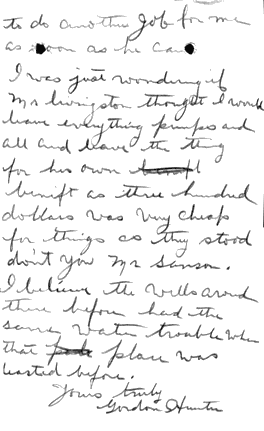 to do another Job for me
as soon as he can
I was just wondering if
Mr livingston thought I would
leave everything pumps and
all and leave the thg
for his own
benift as three hundred
dollars was very cheap
for things as they stood
don't you Mr Sanson.
I believe the wells around
there before had the
same water trouble when
that place was
leased before.
Yours truly
Gordon Hunter